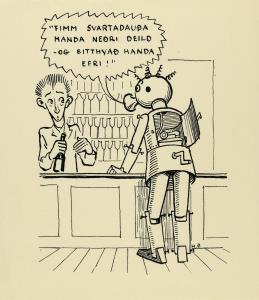 "FIMM SVARTADAUÐA
HANDA NEÐRI DEILD
-OG EITTHVAÐ HANDA
EFRI!"